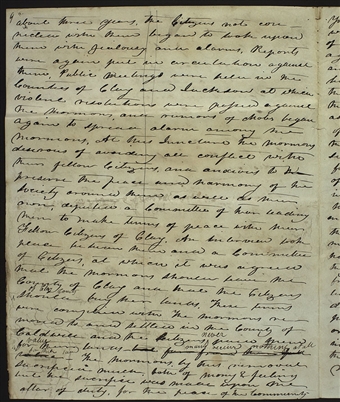 about three years, the Citizens not con
nected with them began to look upon
them with jealousy and alarm, Reports
were again put in circulation against
them, Public Meetings were held in the
Counties of Clay and Jackson at which
violent resolutions were passed against
the Mormons, and rumors of Mobs began
again to spread alarm among the
Mormons, At this juncture the Mormons
desirous of avoiding all conflict with
their fellow Citizens, and anxious to
preserve the peace and harmony of the
society around them as well as their
own deputized a Committee of their leading
men to make terms of peace with their
Fellow Citizens of Clay, An interview took
place between them and a Committee
of Citizens, at which it was agreed
that the Mormons should leave the
County of Clay and that the Citizens
should buy their lands, These terms
were complied with the Mormons re
moved to and settled in the County of
Caldwell and the Citizens never
for their lands
The Mormons by this removal
sacrificed much both of money & feeling
but the sacrifice was made upon the
altar of duty, for the peace of the Community